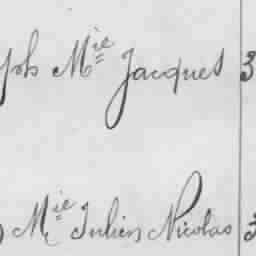 ph Mie Jacques 3
Mie Julien Nicolas 3